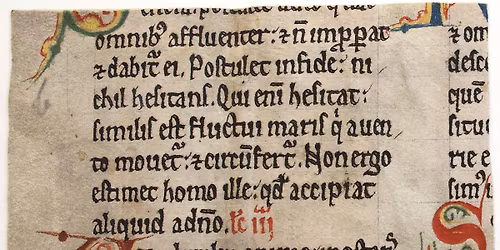 omnib⁹ affluenter: ⁊ nͥ improp̱at
⁊ dabit̃ ei. Postulet in fide: ni
chil hesitans. Qui eni̅ hesitat:
similis est fluctui maris q̇ a uen
to mouet̃: ⁊ circu̅fert̃. Non ergo
estimet homo ille: qd̓ accipiat
aliquid a dn̅o. lc̅ iii
⁊ om
desc
quē
situ
rie e